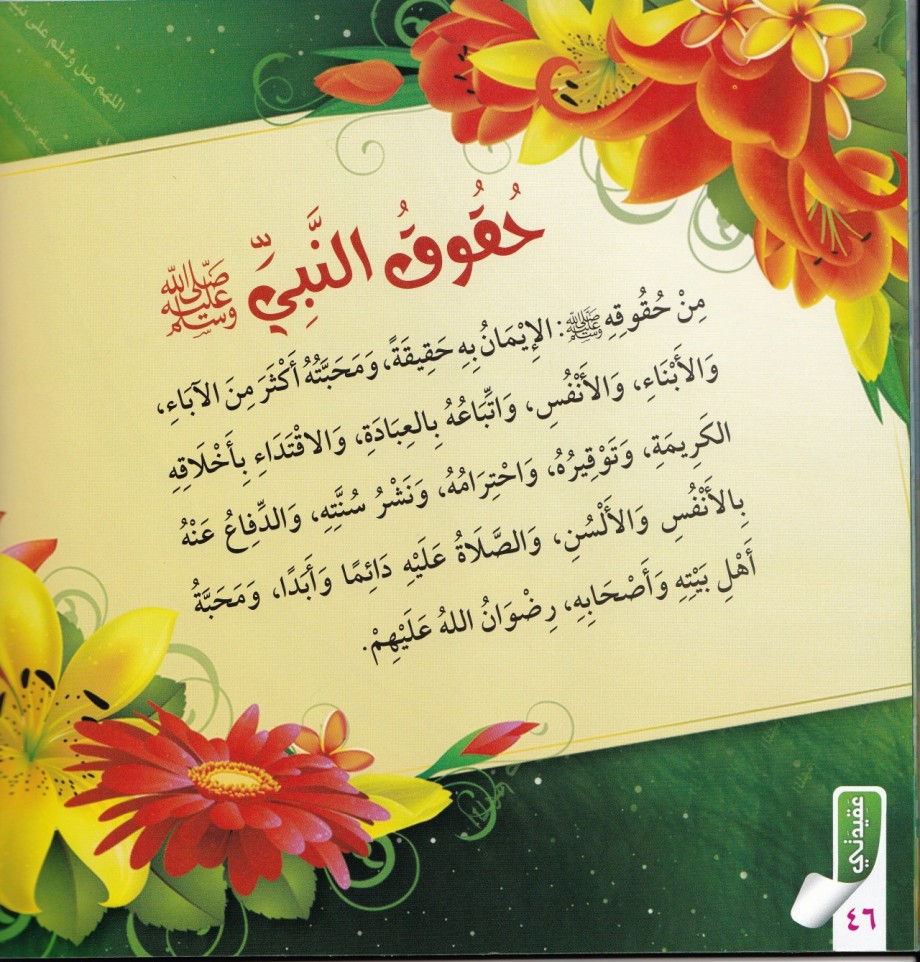 اللهم صل وسلم على نبينا
حُقُوقُ النَّبِيِّ ﷺ
مِنْ حُقُوقِهِ ﷺ: الإِيْمَانُ بِهِ حَقِيقَةً، وَمَحَبَّتُهُ أَكْثَرَ مِنَ الآبَاءِ،
وَالأَبْنَاءِ، وَالأَنْفُسِ، وَاتِّبَاعُهُ بِالعِبَادَةِ، وَالاقْتَدَاءِ بِأَخْلَاقِهِ
الكَرِيمَةِ، وَتَوْقِيرُهُ، وَاحْتِرَامُهُ، وَنَشْرُ سُنَّتِهِ، وَالدِّفَاعُ عَنْهُ
بِالأَنْفُسِ وَالأَلْسُنِ، وَالصَّلَاةُ عَلَيْهِ دَائِمًا وَأَبَدًا، وَمَحَبَّةُ
أَهْلِ بَيْتِهِ وَأَصْحَابِهِ، رِضْوَانُ اللهُ عَلَيْهِمْ.
عَقِيدَتي
٤٦